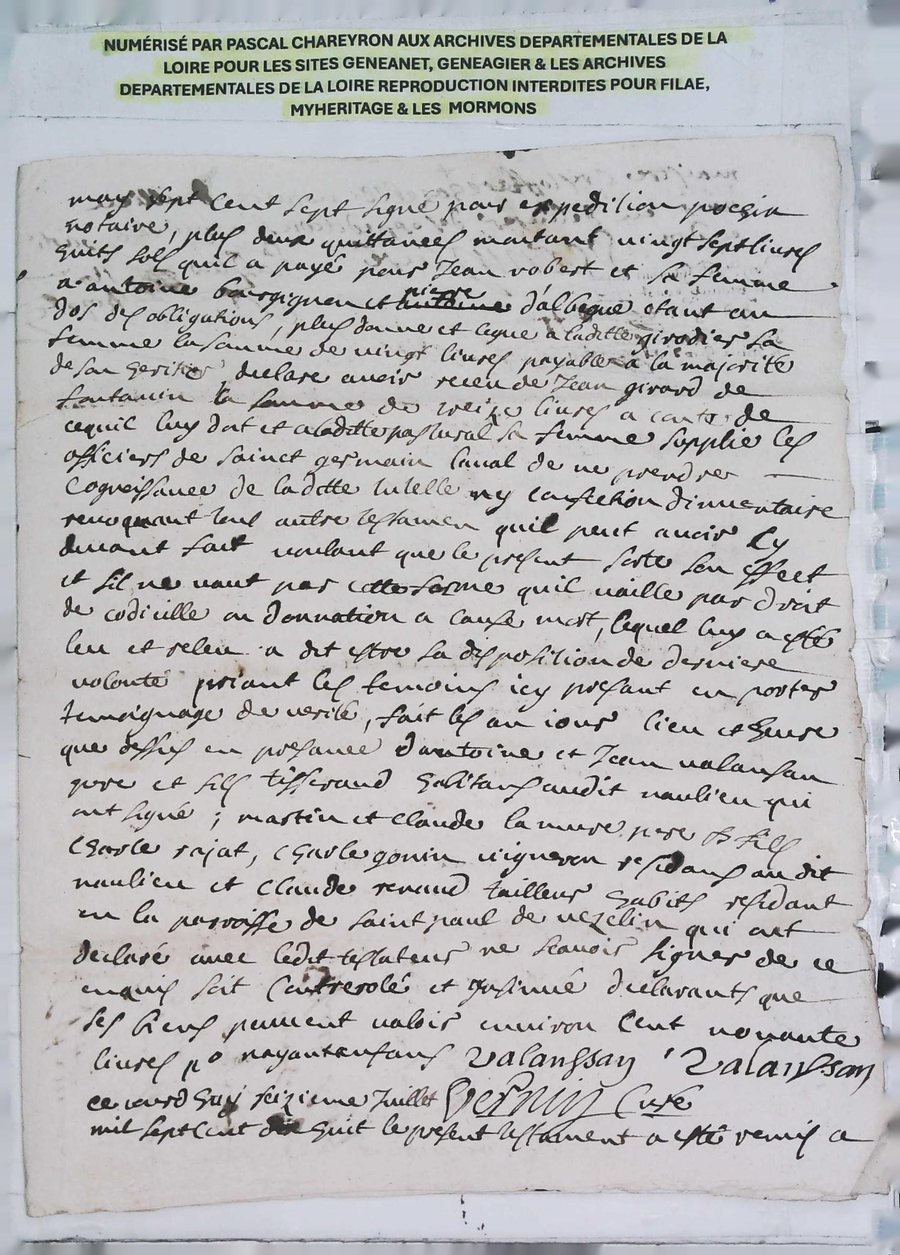 NUMÉRISÉ PAR PASCAL CHAREYRON AUX ARCHIVES DEPARTEMENTALES DE LA
LOIRE POUR LES SITES GENEANET, GENEAGIER & LES ARCHIVES
DEPARTEMENTALES DE LA LOIRE REPRODUCTION INTERDITES POUR FILAE,
MYHERITAGE & LES MORMONS
may sept cent sept signé pour expedition
notaire, plus deux quittances montant vingt sept livres
huits sols quil a payé pour Jean robert et sa femme
a antoine bourgignon et pierre d'albegue etant au
dos des obligations, plus donne et legue a laditte girodier sa
femme la somme de vingt livres payable a la majorité
de son heritier declare avoir receu de Jean girard de
fontanin la somme de treize livres a conte de
cequil luy doit et a laditte pastural sa femme supplie les
officiers de sainct germain laval de ne prendre
cognoissance de laditte tutelle ny confection dinventaire
revoquant tous autre testamen quil peut avoir cy
devant fait voulant que le present sorte son effect
et sil ne vaut pas cette forme quil vaille par droit
de codicille ou donnation a cause mort, lequel luy a esté
leu et releu a dit estre sa disposition de derniere
volonté priant les temoins icy present en porter
temoignage de verité, fait les an jour lieu et heure
que dessus en presance d'antoine et Jean valansan
pere et fils tisserand habitans audit naulieu qui
ont signé ; martin et Claude la mure pere et fils
Charle rajat, Charle gonin vigneron residans au dit
naulieu et Claude renaud tailleur habits residant
en la parroisse de saint paul de vezelin qui ont
declaré avec ledit testateur ne scavoir signer de ce
enquis soit Contrerolé et insinué declarants que
ses biens peuvent valoir environ Cent nonante
livres po nayant enfans Valanssan Valanssan
ce jourdhuy seizieme Juillet Vernin Curé
mil sept cent dix huit le present testament a esté remis a